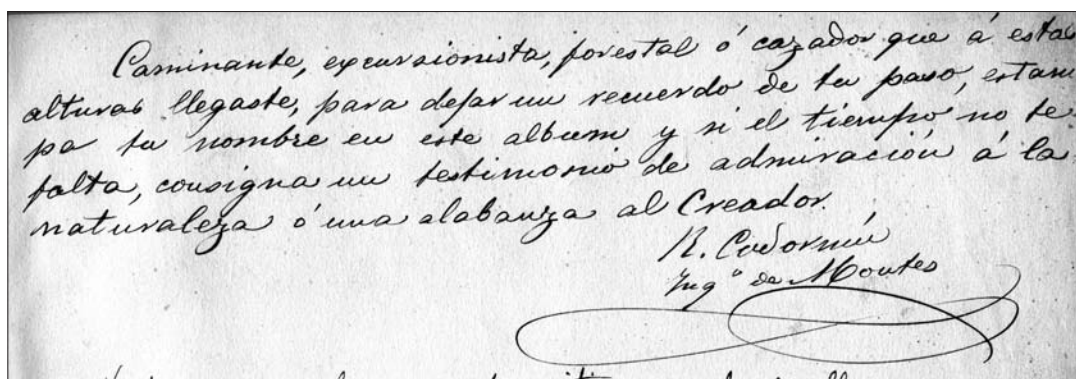 Caminante, excursionista, forestal ó cazador que á estas
alturas llegaste, para dejar un recuerdo de tu paso, estam
pa tu nombre en este album y si el tiempo no te
falta, consigna un testimonio de admiración á la
naturaleza ó una alabanza al Creador.
R. Codorníu
Ingº de Montes